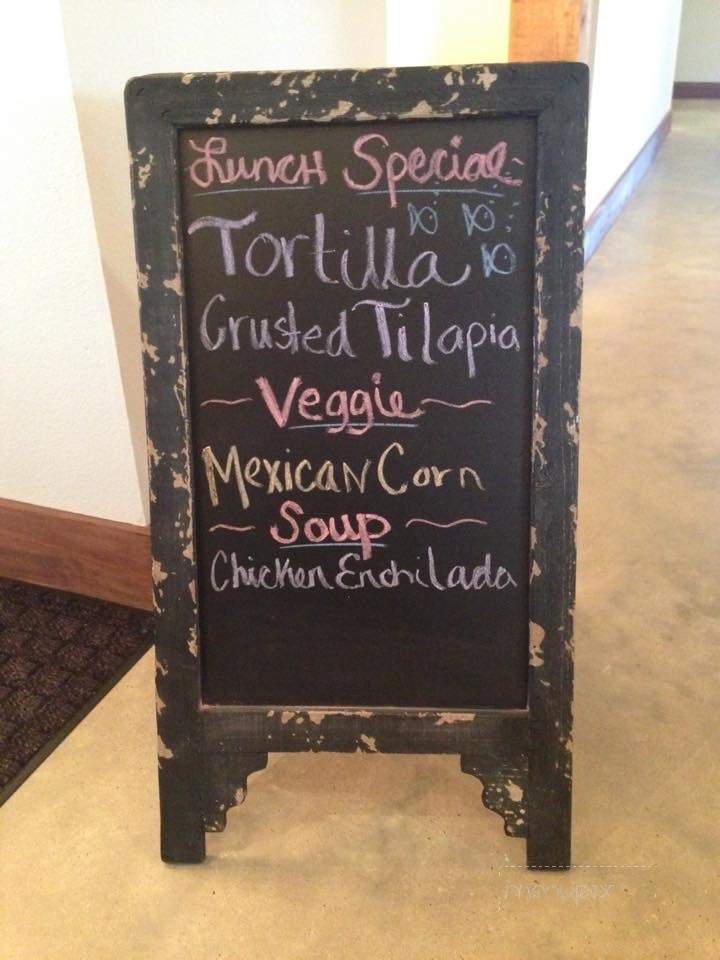 Lunch Special
Tortilla
Crusted Tilapia
Veggie
Mexican Corn
Soup
Chicken Enchilada
menupix